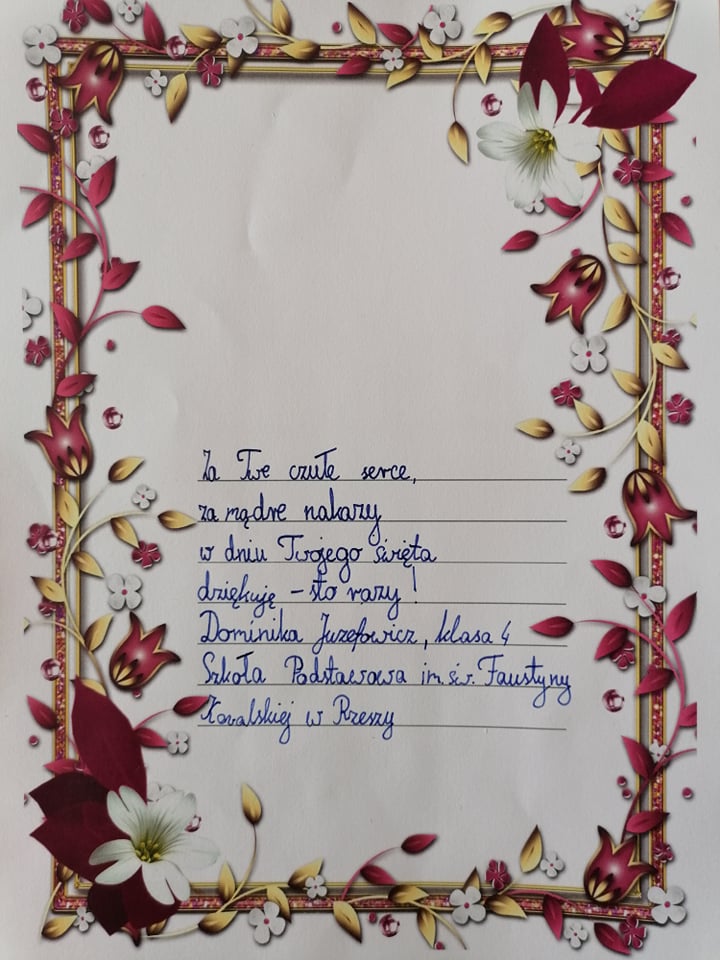 Za Twe czułe serce,
za mądre nakazy
w dniu Twojego święta
dziękuję - sto razy!
Dominika Juzefowicz, klasa 4
Szkoła Podstawowa im. św. Faustyny
Kowalskiej w Rzeszy